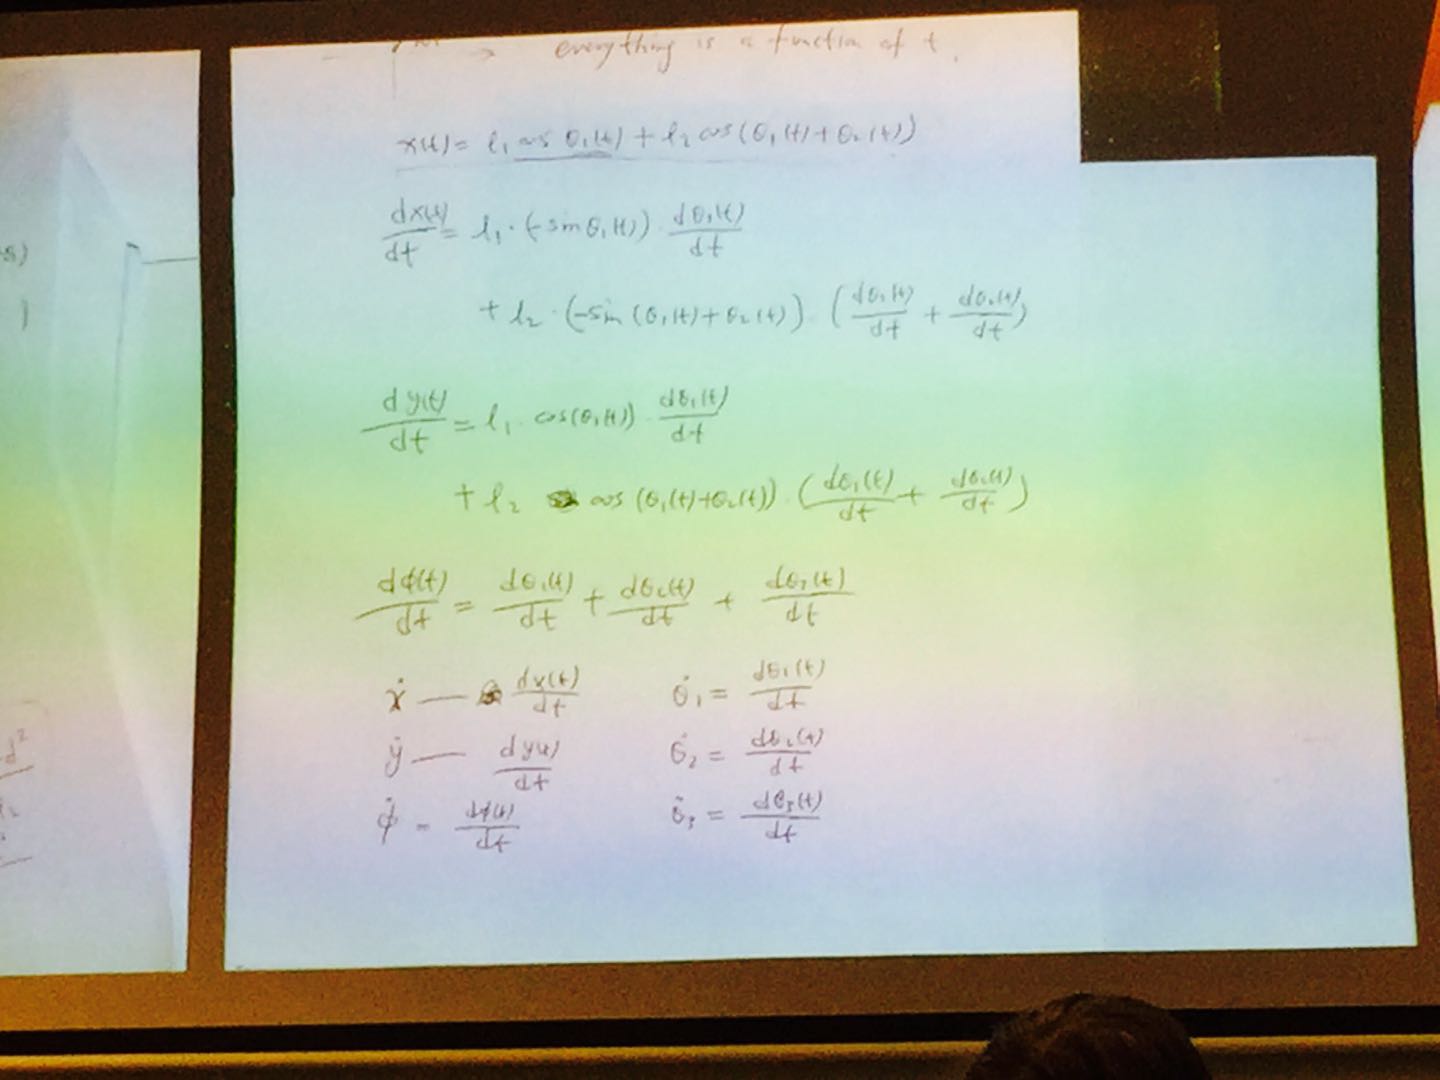 everything is a function of t.
x(t) = l₁ cos θ₁(t) + l₂ cos(θ₁(t) + θ₂(t))
dx(t)/dt = l₁ · (-sin θ₁(t)) · dθ₁(t)/dt
+ l₂ · (-sin (θ₁(t) + θ₂(t)) · (dθ₁(t)/dt + dθ₂(t)/dt)
dy(t)/dt = l₁ · cos(θ₁(t)) · dθ₁(t)/dt
+ l₂ cos (θ₁(t) + θ₂(t)) · (dθ₁(t)/dt + dθ₂(t)/dt)
dϕ(t)/dt = dθ₁(t)/dt + dθ₂(t)/dt + dθ₃(t)/dt
ẋ — dx(t)/dt θ̇₁ = dθ₁(t)/dt
ẏ — dy(t)/dt θ̇₂ = dθ₂(t)/dt
ϕ̇ = dϕ(t)/dt θ̇₃ = dθ₃(t)/dt